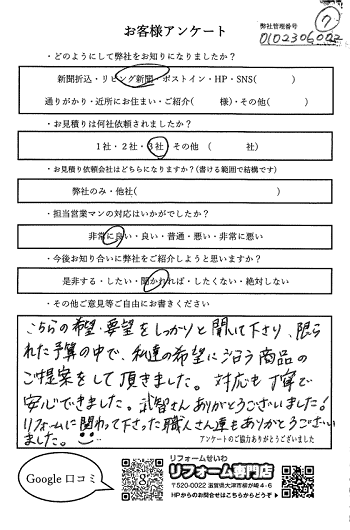 お客様アンケート
弊社管理番号
⑦
・どのようにして弊社をお知りになりましたか？
新聞折込・リビング新聞・ポストイン・HP・SNS(　　　)
通りがかり・近所にお住まい・ご紹介(　　様)・その他(　　)
・お見積りは何社依頼されましたか？
1社・2社・3社・その他（　　社）
・お見積り依頼会社はどちらになりますか？(書ける範囲で結構です)
弊社のみ・他社(　　　)
・担当営業マンの対応はいかがでしたか？
非常に良い・良い・普通・悪い・非常に悪い
・今後お知り合いに弊社をご紹介しようと思いますか？
是非する・したい・聞かれれば・したくない・絶対しない
・その他ご意見等ご自由にお書きください
こちらの希望・要望をしっかりと聞いて下さり、限ら
れた予算の中で、私達の希望に沿う商品の
ご提案をして頂きました。対応も丁寧で
安心できました。武智さんありがとうございました!
リフォームに関わって下さった職人さん達もありがとうござい
ました。
アンケートのご協力ありがとうございました
Google口コミ
リフォームせいわ
リフォーム専門店
〒520-0022 滋賀県大津市柳が崎4-6
HPからのお問合せはこちらからどうぞ